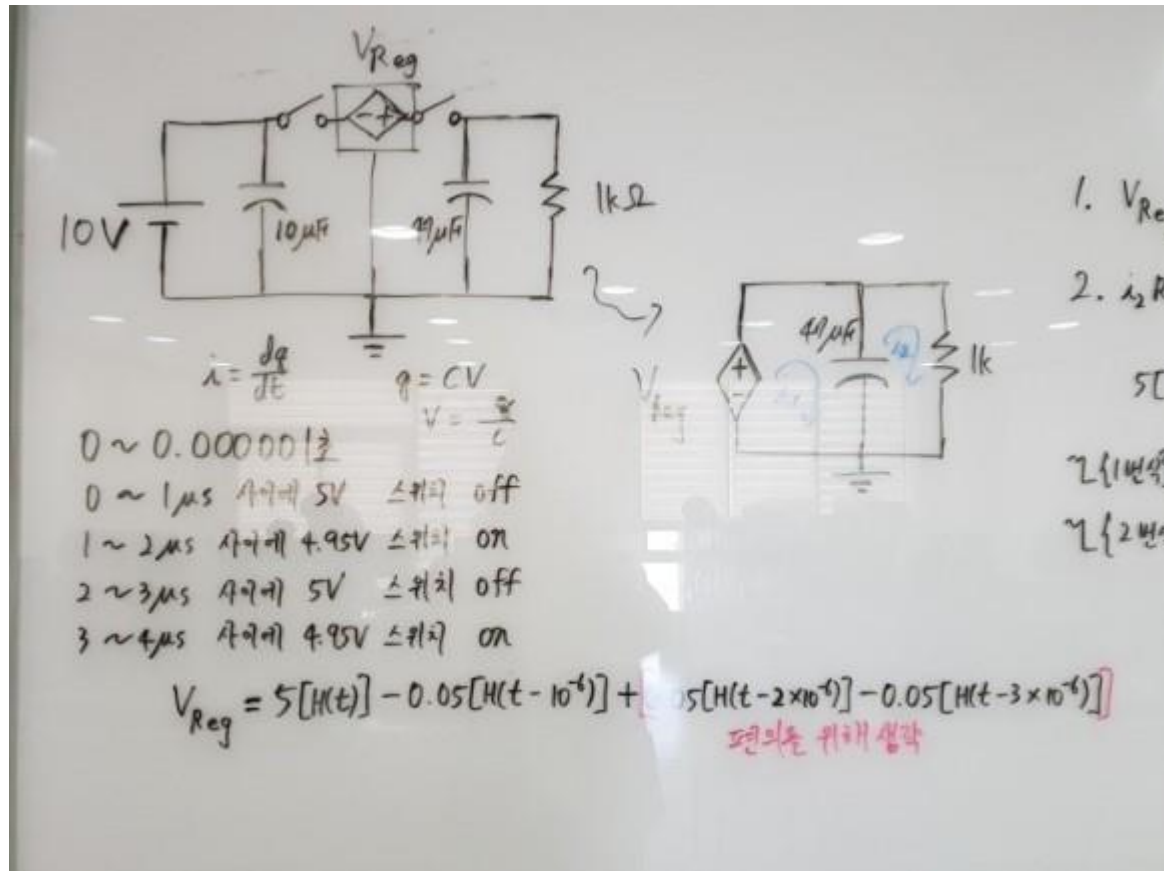 V_Reg
10V
10μF
47μF
1kΩ
i = dq/dt
q = CV
V = q/C
V_Reg
47μF
i₁
i₂
1k
0 ~ 0.000001초
0 ~ 1μs 사이에 5V 스위치 off
1 ~ 2μs 사이에 4.95V 스위치 on
2 ~ 3μs 사이에 5V 스위치 off
3 ~ 4μs 사이에 4.95V 스위치 on
V_Reg = 5[H(t)] - 0.05[H(t - 10⁻⁶)] + [0.05[H(t - 2×10⁻⁶)] - 0.05[H(t - 3×10⁻⁶)]]
편의를 위해 생략
1. V_Re
2. i₂ R
5[
{1번식}
{2번